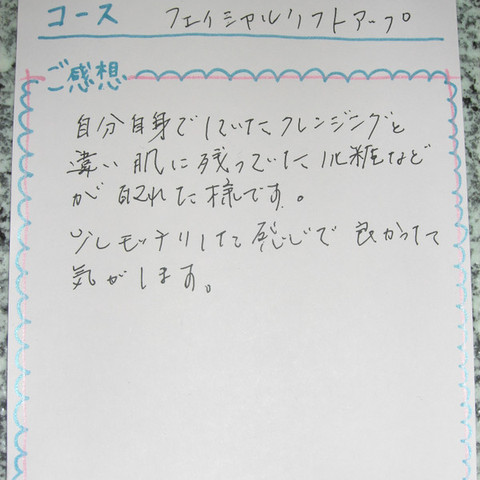 コース フェイシャルリフトアップ
ご感想
自分自身でしていたクレンジングと
違い肌に残っていた化粧など
が取れた様です。
少しモッチリした感じで良かった
気がします。